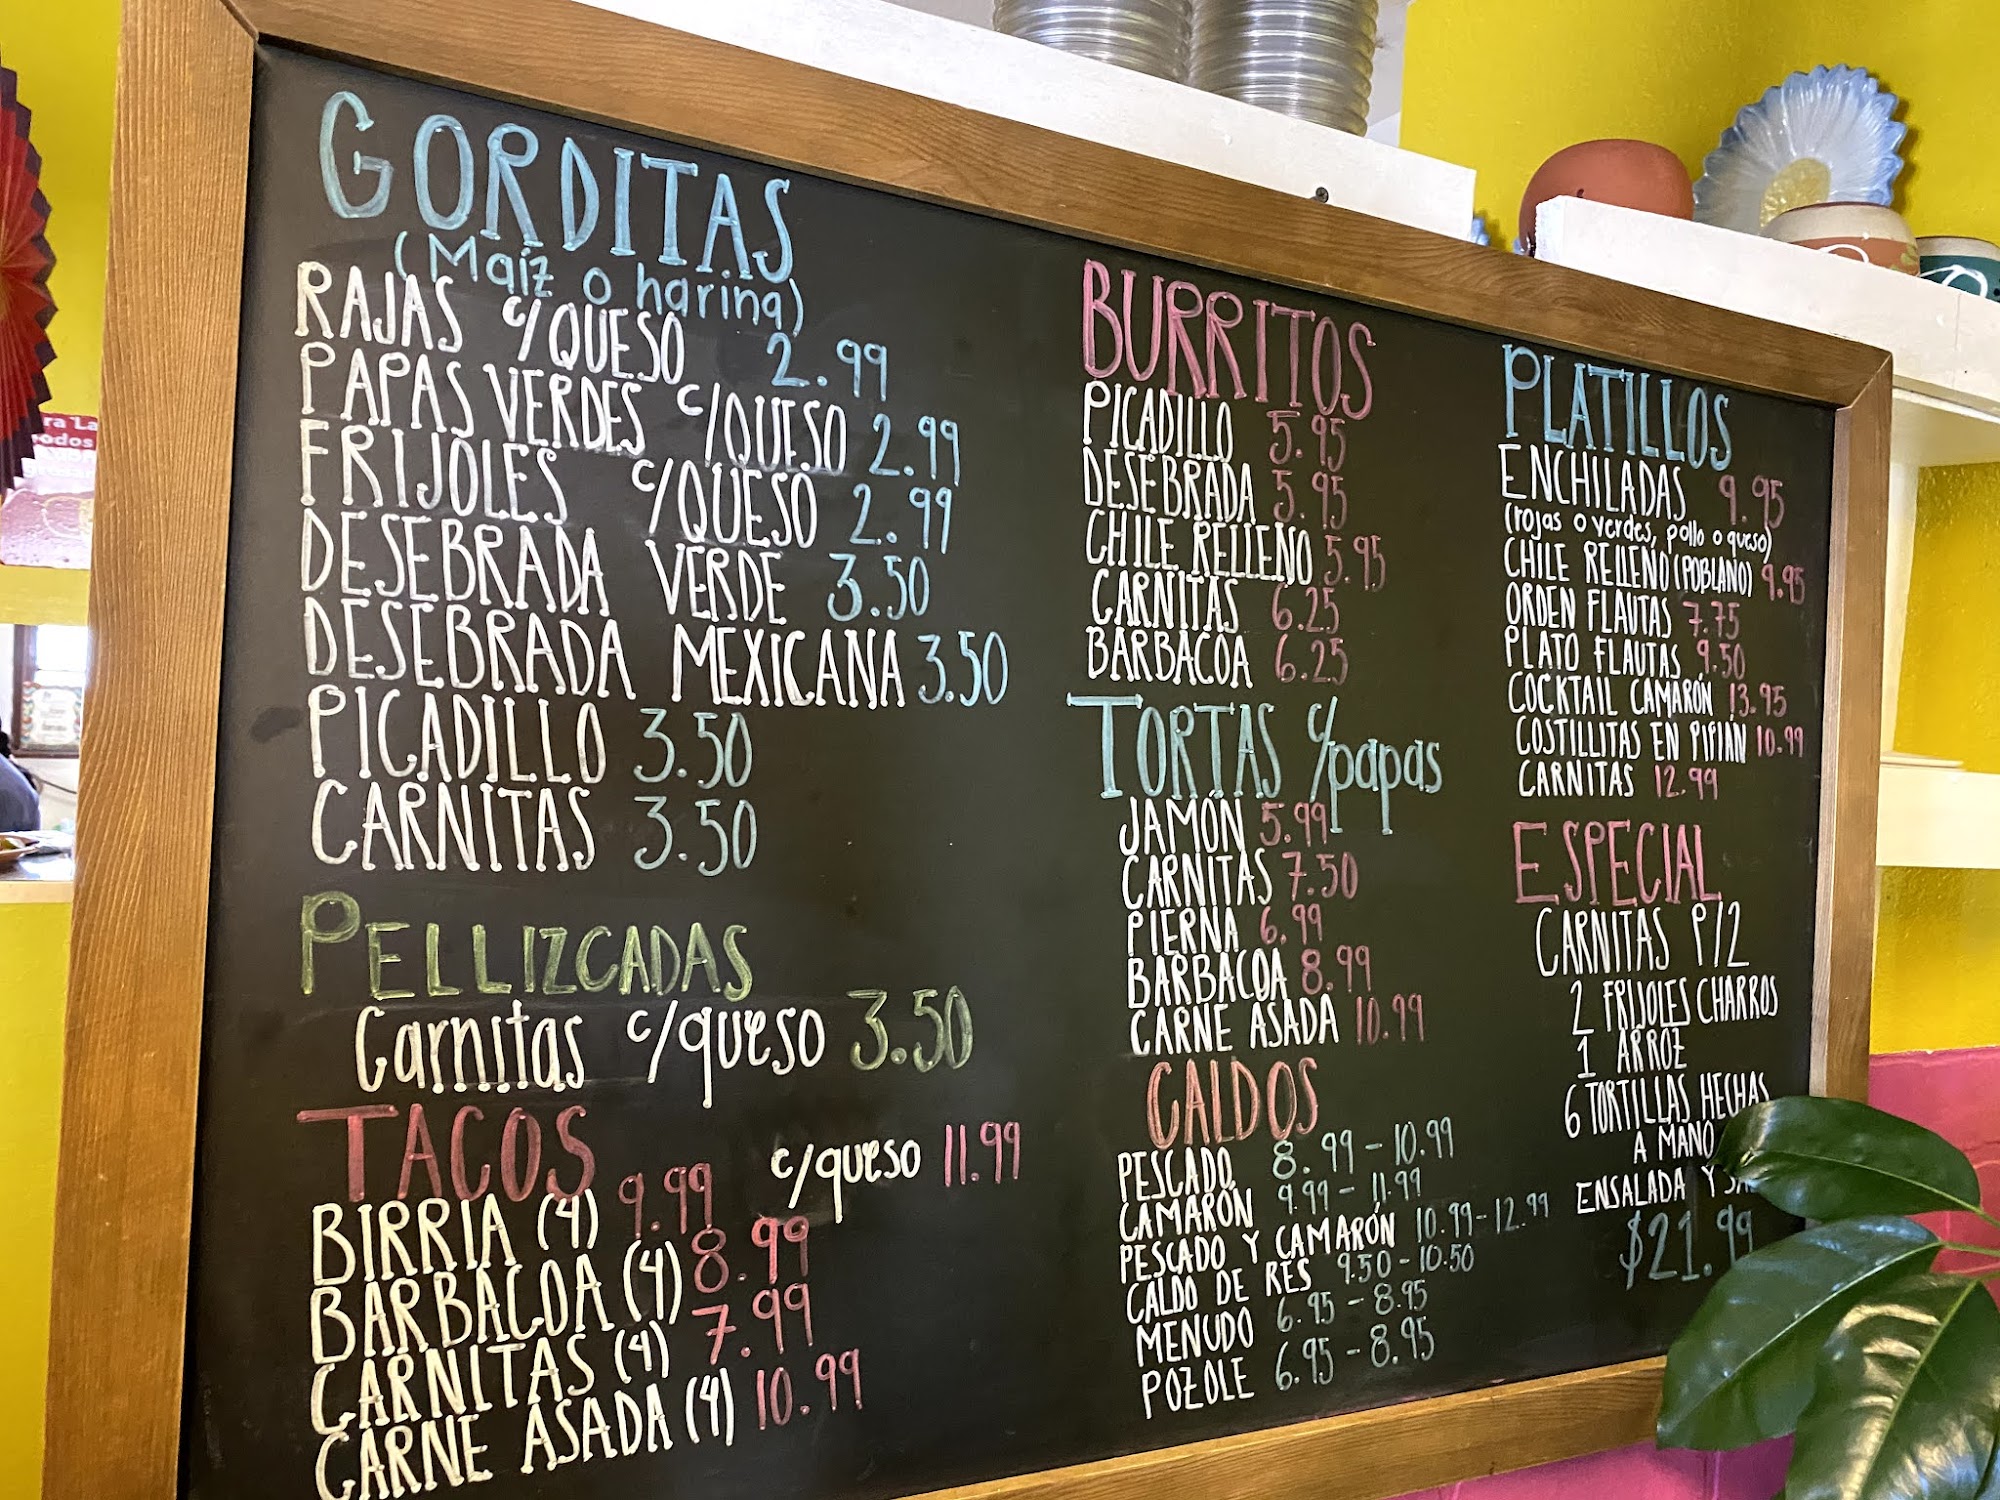 GORDITAS
(Maíz o harina)
RAJAS c/QUESO 2.99
PAPAS VERDES c/QUESO 2.99
FRIJOLES c/QUESO 2.99
DESEBRADA VERDE 3.50
DESEBRADA MEXICANA 3.50
PICADILLO 3.50
CARNITAS 3.50
PELLIZCADAS
Carnitas c/queso 3.50
TACOS
BIRRIA (4) 9.99 c/queso 11.99
BARBACOA (4) 8.99
CARNITAS (4) 7.99
CARNE ASADA (4) 10.99
BURRITOS
PICADILLO 5.95
DESEBRADA 5.95
CHILE RELLENO 5.95
CARNITAS 6.25
BARBACOA 6.25
TORTAS c/papas
JAMÓN 5.99
CARNITAS 7.50
PIERNA 6.99
BARBACOA 8.99
CARNE ASADA 10.99
CALDOS
PESCADO 8.99 - 10.99
CAMARÓN 9.99 - 11.99
PESCADO Y CAMARÓN 10.99 - 12.99
CALDO DE RES 9.50 - 10.50
MENUDO 6.95 - 8.95
POZOLE 6.95 - 8.95
PLATILLOS
ENCHILADAS 9.95
(rojas o verdes, pollo o queso)
CHILE RELLENO (POBLANO) 9.95
ORDEN FLAUTAS 7.75
PLATO FLAUTAS 9.50
COCKTAIL CAMARÓN 13.95
COSTILLITAS EN PIPIÁN 10.99
CARNITAS 12.99
ESPECIAL
CARNITAS P/2
2 FRIJOLES CHARROS
1 ARROZ
6 TORTILLAS HECHAS
A MANO
ENSALADA Y
$21.99